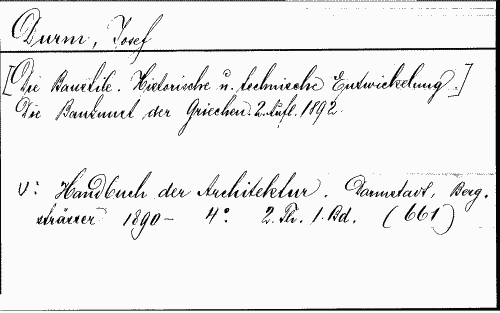 Durm, Josef
[Die Baustile. Historische u. technische Entwickelung.]
Die Baukunst der Griechen. 2. Aufl. 1892.
V: Handbuch der Architektur. Darmstadt, Berg.
strässer 1890- 4°. 2. Th. 1. Bd. (661)